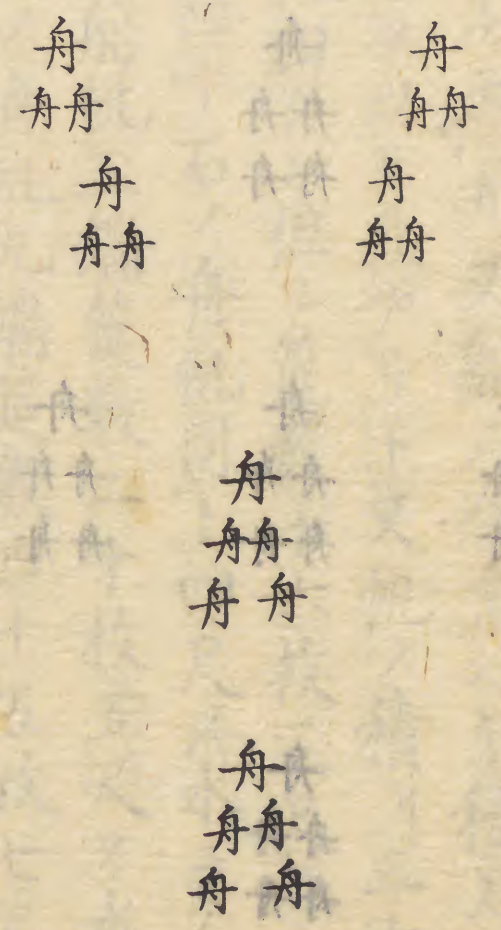 舟 舟
舟舟 舟舟
舟 舟
舟舟 舟舟
舟
舟舟
舟 舟
舟
舟舟
舟 舟